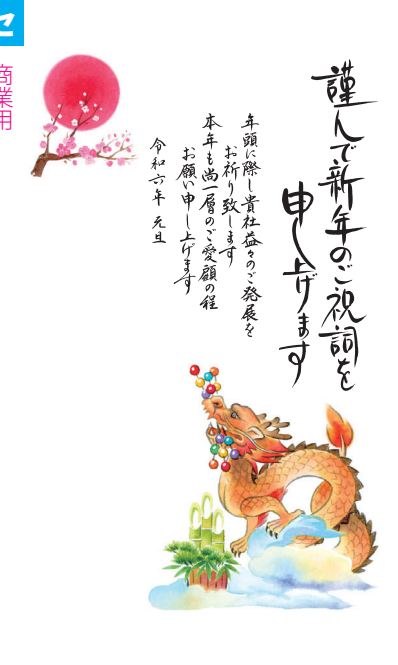 謹んで新年のご祝詞を
申し上げます
年頭に際し貴社益々のご発展を
お祈り致します
本年も尚一層のご愛顧の程
お願い申し上げます
令和六年 元旦
セ
商業用